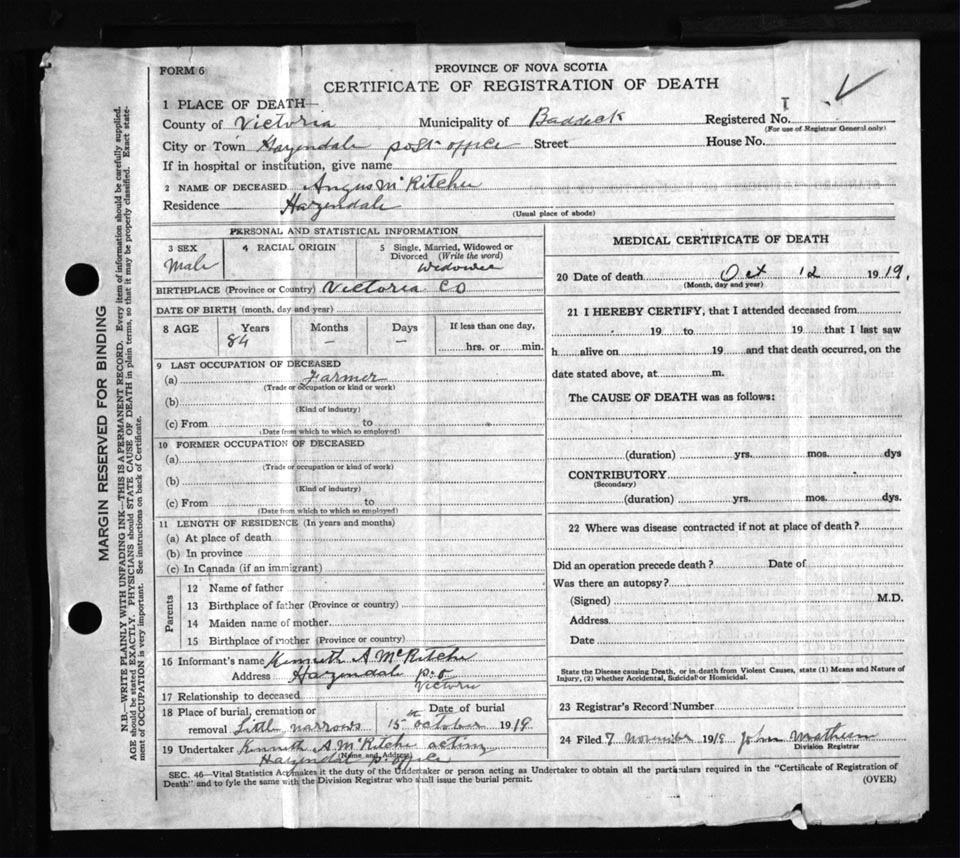 FORM 6
PROVINCE OF NOVA SCOTIA
CERTIFICATE OF REGISTRATION OF DEATH
1 PLACE OF DEATH—
County of Victoria Municipality of Baddeck Registered No.
(For use of Registrar General only)
City or Town Hazendale post office Street House No.
If in hospital or institution, give name
2 NAME OF DECEASED Angus McRitchie
Residence Hazendale
(Usual place of abode)
PERSONAL AND STATISTICAL INFORMATION
3 SEX 4 RACIAL ORIGIN 5 Single, Married, Widowed or
Divorced (Write the word)
Male
BIRTHPLACE (Province or Country) Victoria Co
DATE OF BIRTH (month, day and year)
8 AGE Years Months Days If less than one day,
84 — — hrs. or min.
9 LAST OCCUPATION OF DECEASED
(a) Farmer
(Trade or occupation or kind or work)
(b)
(Kind of industry)
(c) From to
(Date from which to which so employed)
10 FORMER OCCUPATION OF DECEASED
(a)
(Trade or occupation or kind of work)
(b)
(Kind of industry)
(c) From to
(Date from which to which so employed)
11 LENGTH OF RESIDENCE (In years and months)
(a) At place of death
(b) In province
(c) In Canada (if an immigrant)
Parents
12 Name of father
13 Birthplace of father (Province or country)
14 Maiden name of mother
15 Birthplace of mother (Province or country)
16 Informant's name Kenneth A McRitchie
Address Hazendale P.O
Victoria
17 Relationship to deceased
18 Place of burial, cremation or Date of burial
removal Little narrows 15 october 1919
19 Undertaker Kenneth A McRitchie acting
(Name and Address)
Hazendal P. office
MEDICAL CERTIFICATE OF DEATH
20 Date of death Oct 12 1919.
(Month, day and year)
21 I HEREBY CERTIFY, that I attended deceased from
19 to 19 that I last saw
h alive on 19 and that death occurred, on the
date stated above, at m.
The CAUSE OF DEATH was as follows:
(duration) yrs. mos. dys
CONTRIBUTORY
(Secondary)
(duration) yrs. mos. dys.
22 Where was disease contracted if not at place of death?
Did an operation precede death? Date of
Was there an autopsy?
(Signed) M.D.
Address
Date
State the Disease causing Death, or in death from Violent Causes, state (1) Means and Nature of
Injury, (2) whether Accidental, Suicidal or Homicidal.
23 Registrar's Record Number
24 Filed 7 november 1919 John
Division Registrar
SEC. 46—Vital Statistics Act makes it the duty of the Undertaker or person acting as Undertaker to obtain all the particulars required in the "Certificate of Registration of
Death" and to fyle the same with the Division Registrar who shall issue the burial permit. (OVER)
MARGIN RESERVED FOR BINDING
N.B.—WRITE PLAINLY WITH UNFADING INK—THIS IS A PERMANENT RECORD. Every item of information should be carefully supplied.
AGE should be stated EXACTLY. PHYSICIANS should STATE CAUSE OF DEATH in plain terms, so that it may be properly classified. Exact state-
ment of OCCUPATION is very important. See instructions on back of Certificate.